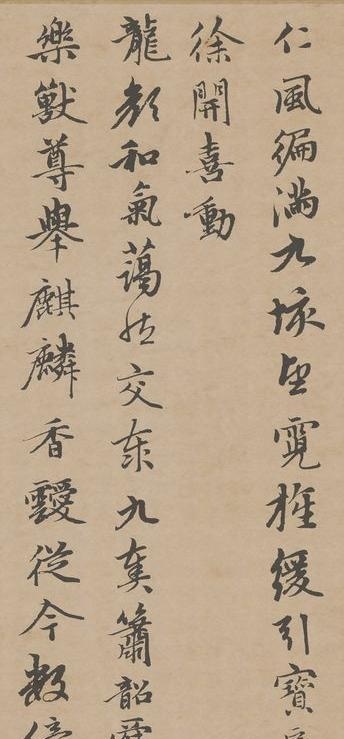 仁風徧滿九垓望霓旌緩引寶
徐開喜動
龍顏和氣藹然交泰九奏簫韶舜
樂獸尊舉麒麟香靉從今數